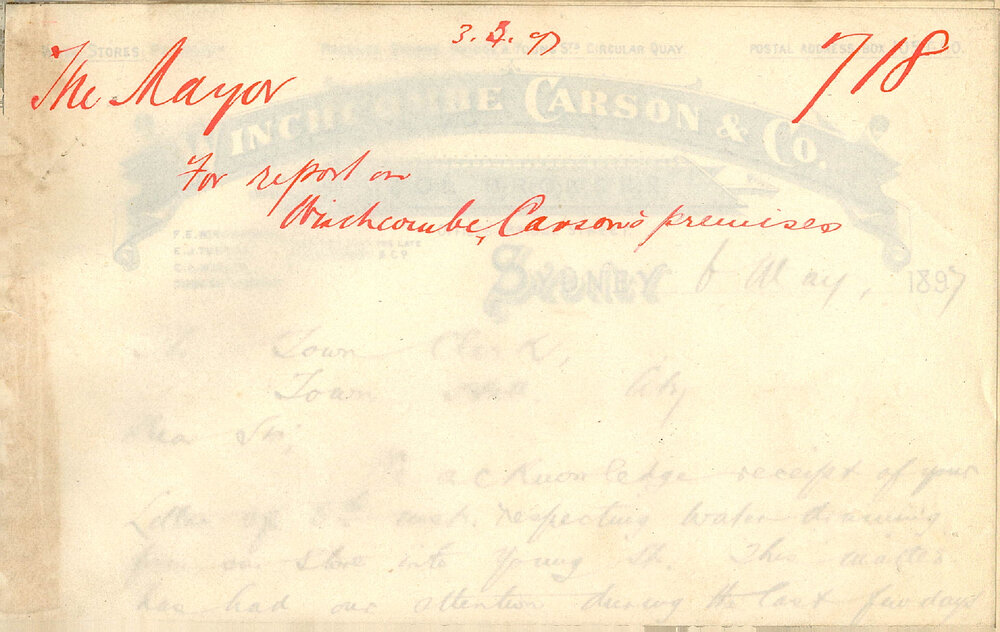 3. 5. 97
STORES CIRCULAR QUAY POSTAL ADDRESS BOX
The Mayor 718
WINCHCOMBE CARSON & CO.
For report on
Winchcombe, Carson's premises
SYDNEY 6 May, 1897
Town Clerk,
Town Hall City
Dear Sir,
acknowledge receipt of your
Letter of 5th inst. respecting water draining
from our store into Young St. This matter
has had our attention during the last few days